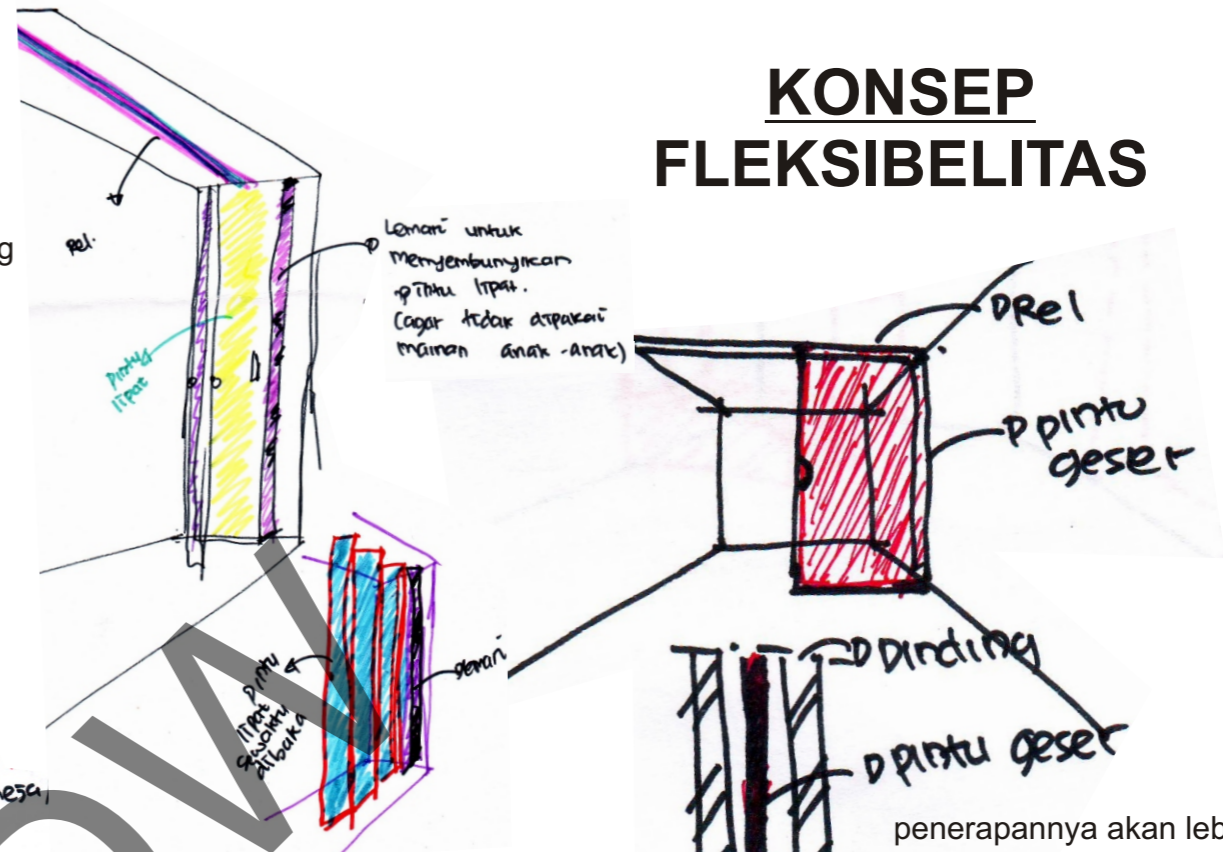 KONSEP
FLEKSIBELITAS
g
Rel.
Lemari untuk
menyembunyikan
pintu lipat.
(agar tidak dipakai
mainan anak-anak)
pintu
lipat
Rel
pintu
geser
pintu
lipat
sewaktu
dibuka
lemari
Dinding
pintu geser
penerapannya akan leb